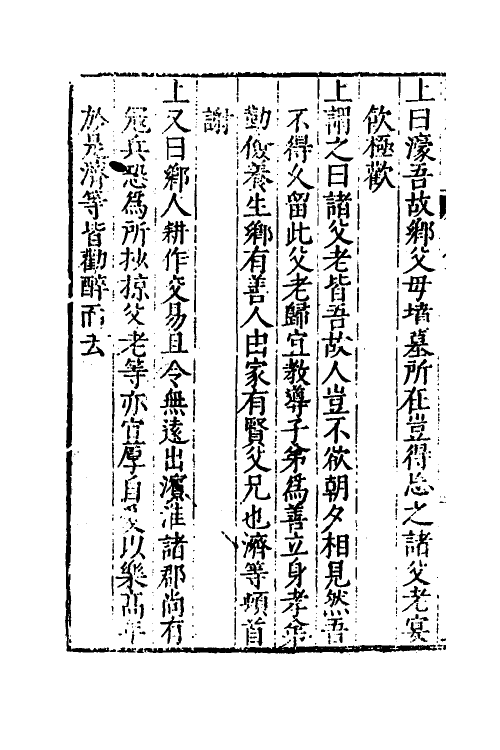 上曰濠吾故鄉父母墳墓所在豈得忘之諸父老宴
飲極歡
上謂之曰諸父老皆吾故人豈不欲朝夕相見然吾
不得久留此父老歸宜教導子弟為善立身孝弟
勤儉養生鄉有善人由家有賢父兄也濟等頓首
謝
上又曰鄉人耕作交易且令無遠出濱淮諸郡尚有
寇兵恐為所抄掠父老等亦宜厚自愛以樂高年
於是濟等皆勸醉而去